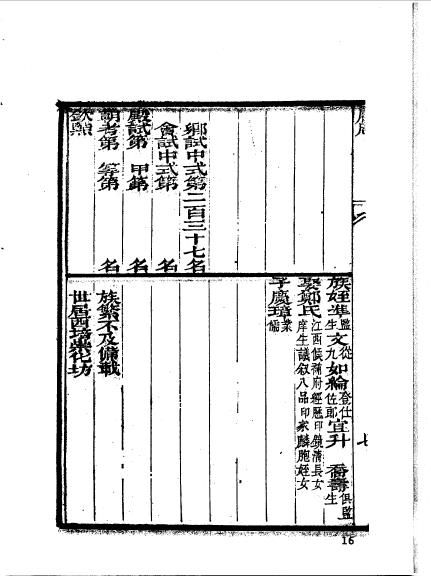 族姪準監生 文從九 如綸登仕佐郎 宜升 喬壽俱監生
娶鄭氏江西候補府經歷印鏡清長女 庠生議敘八品印家麟胞姪女
子慶璋業儒
族繁不及備載
世居西塘
坊
鄉試中式第二百三十七名
會試中式第 名
殿試第 甲第 名
朝考第 等第 名
欽點
七
16